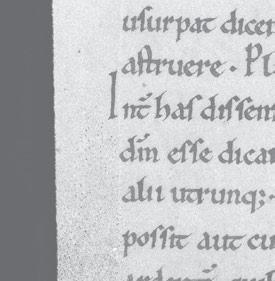 uſurpat dicer
aſtruere · Pl
Int̄ has diſſen
dn̄i eſſe dicat
alii utrunq;·
poſſit aut cu